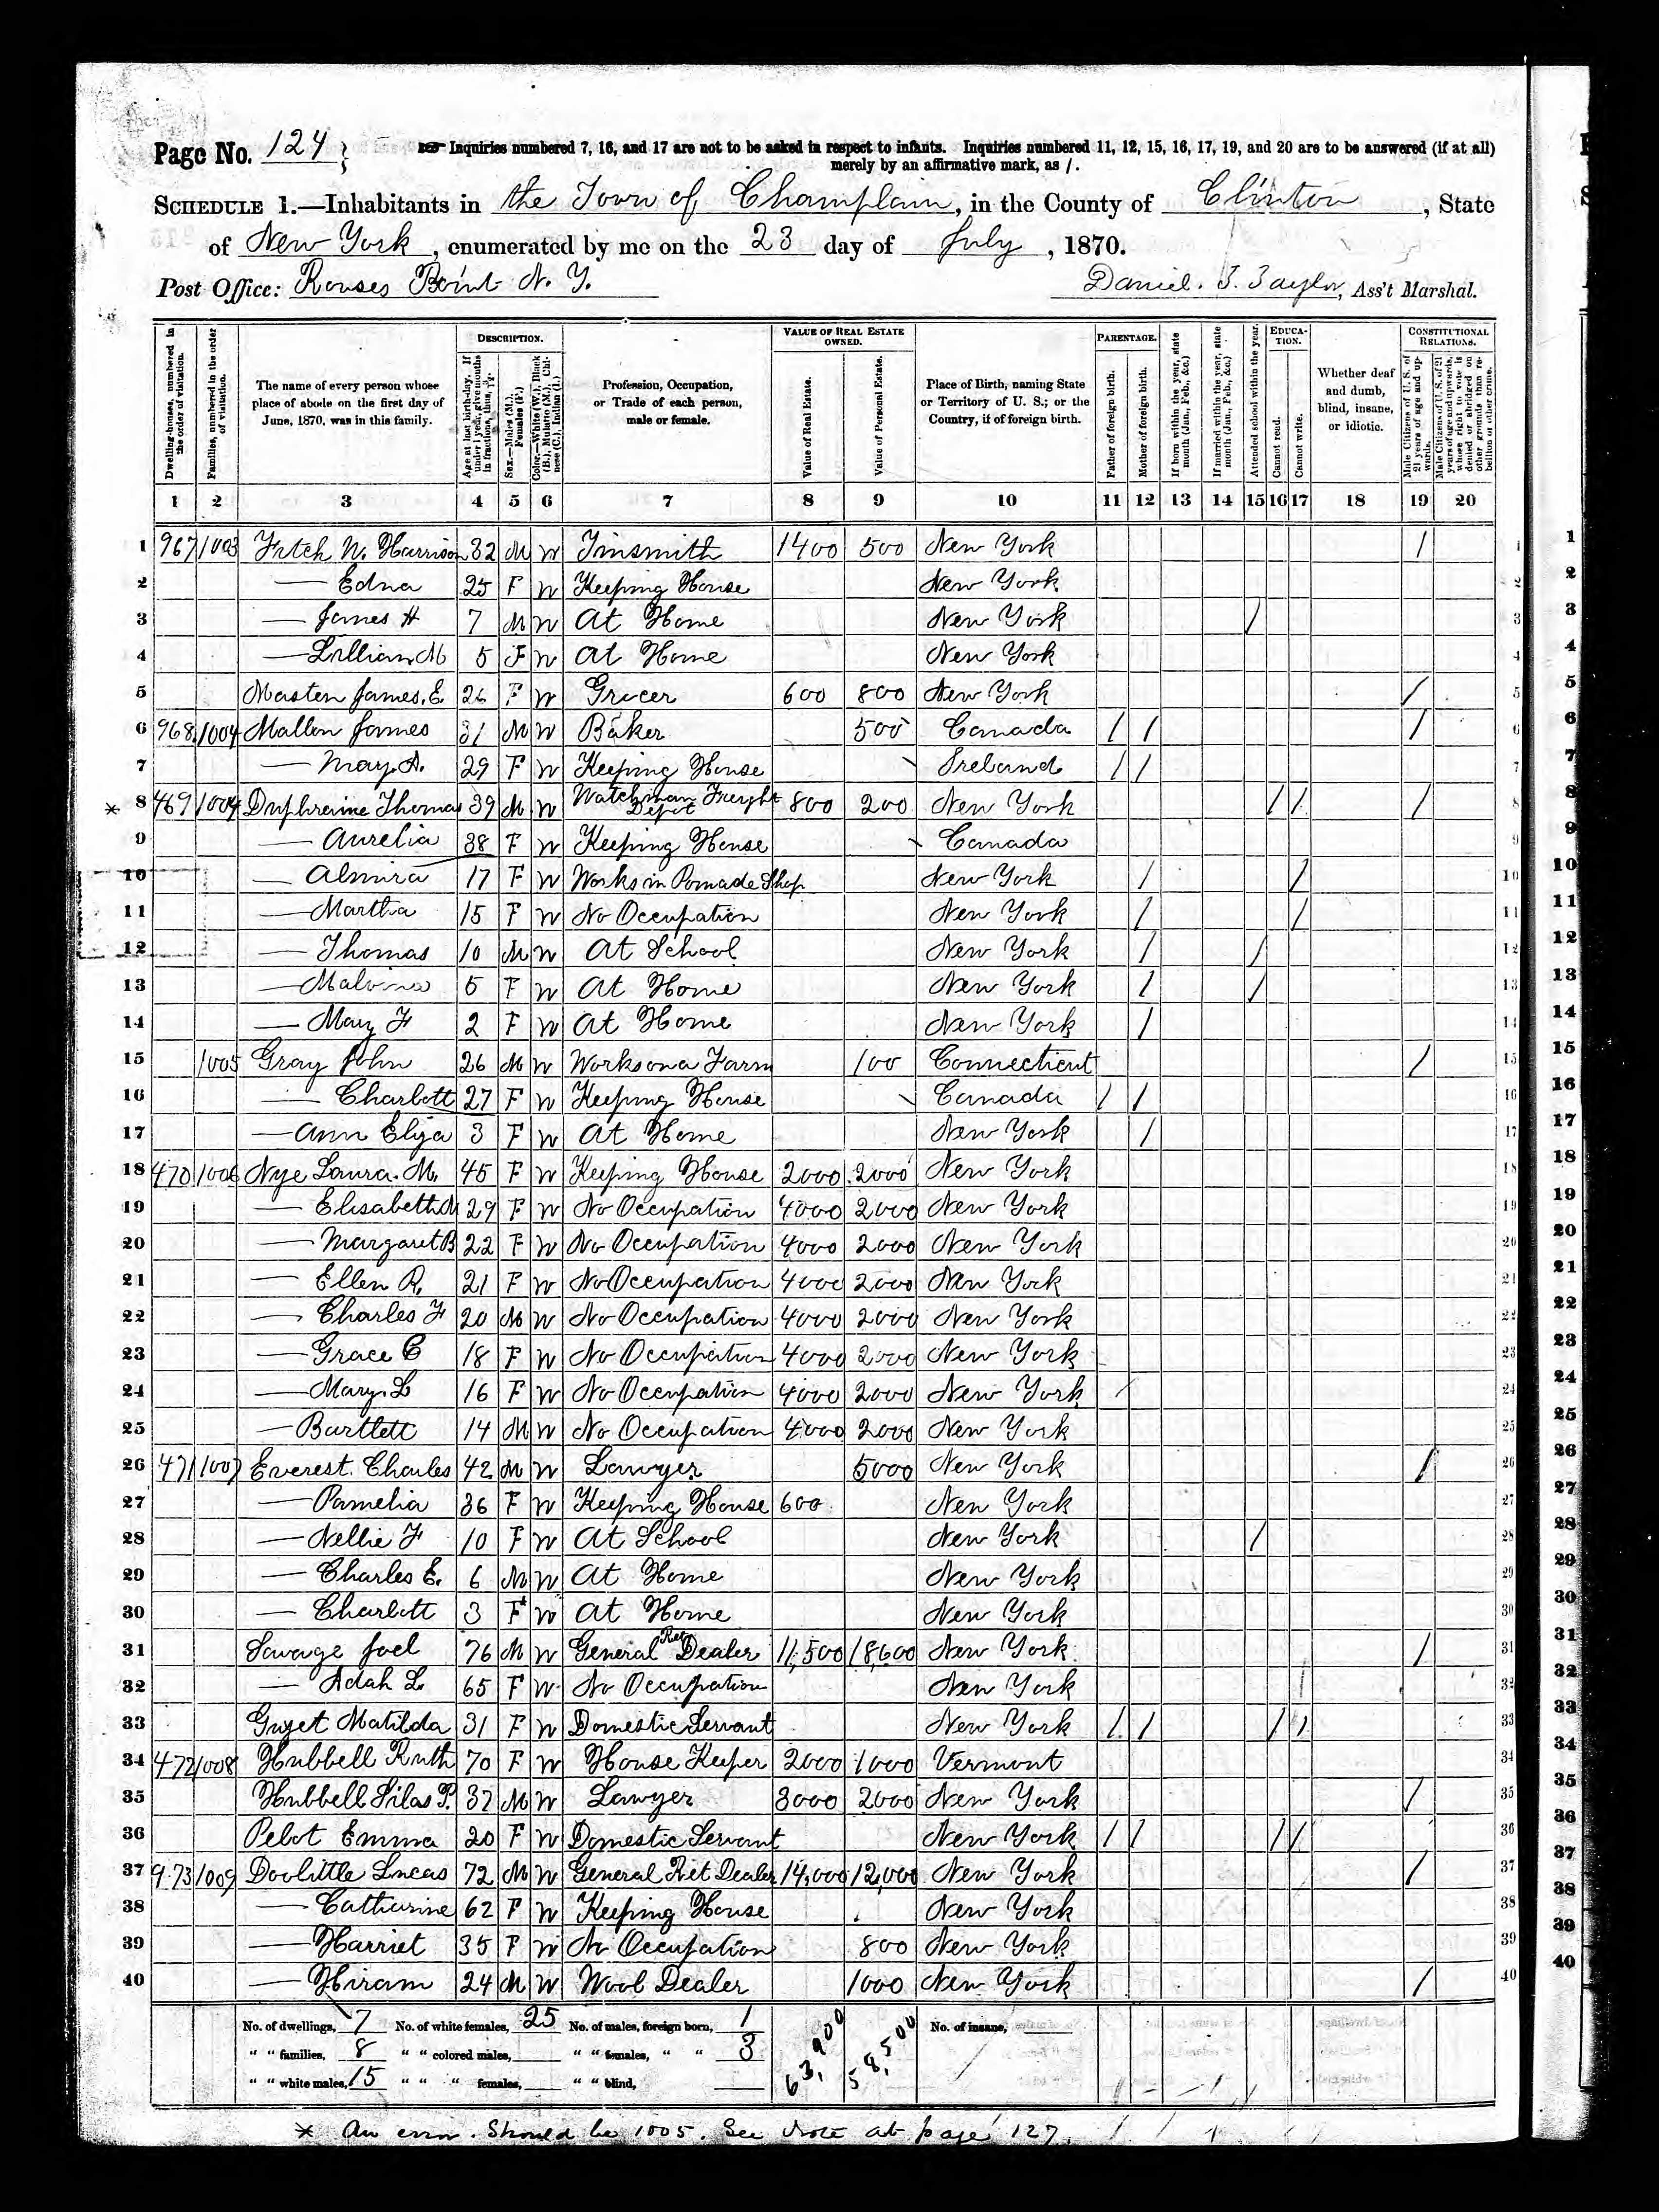 Page No. 124
Inquiries numbered 7, 16, and 17 are not to be asked in respect to infants. Inquiries numbered 11, 12, 15, 16, 17, 19, and 20 are to be answered (if at all)
merely by an affirmative mark, as /.
SCHEDULE 1.—Inhabitants in the Town of Champlain, in the County of Clinton, State
of New York, enumerated by me on the 23 day of July, 1870.
Post Office: Rouses Point N. Y. Daniel. T. Taylor, Ass't Marshal.
Dwelling-houses, numbered in the order of visitation.
Families, numbered in the order of visitation.
The name of every person whose place of abode on the first day of June, 1870, was in this family.
DESCRIPTION.
Age at last birth-day. If under 1 year, give months in fractions, thus, 3/12.
Sex.—Males (M.), Females (F.)
Color.—White (W.), Black (B.), Mulatto (M.), Chinese (C.), Indian (I.)
Profession, Occupation, or Trade of each person, male or female.
VALUE OF REAL ESTATE OWNED.
Value of Real Estate.
Value of Personal Estate.
Place of Birth, naming State or Territory of U. S.; or the Country, if of foreign birth.
PARENTAGE.
Father of foreign birth.
Mother of foreign birth.
If born within the year, state month (Jan., Feb., &c.)
If married within the year, state month (Jan., Feb., &c.)
Attended school within the year.
EDUCATION.
Cannot read.
Cannot write.
Whether deaf and dumb, blind, insane, or idiotic.
CONSTITUTIONAL RELATIONS.
Male Citizens of U. S. of 21 years of age and upwards.
Male Citizens of U. S. of 21 years of age and upwards, whose right to vote is denied or abridged on other grounds than rebellion or other crime.
1 2 3 4 5 6 7 8 9 10 11 12 13 14 15 16 17 18 19 20
1 967 1003 Fitch N. Harrison 32 M W Tinsmith 1400 500 New York / 1
2 — Edna 25 F W Keeping House New York 2
3 — James H 7 M W At Home New York / 3
4 — Lillian M 5 F W At Home New York 4
5 Masten James. E. 26 F W Grocer 600 800 New York / 5
6 968 1004 Mallen James 31 M W Baker 500 Canada / / / 6
7 — Mary A. 29 F W Keeping House Ireland / / 7
* 8 469 1004 Duphraine Thomas 39 M W Watchman Freight Depot 800 200 New York / / / 8
9 — Aurelia 38 F W Keeping House Canada 9
10 — Almira 17 F W Works in Pomade Shop New York / / 10
11 — Martha 15 F W No Occupation New York / / 11
12 — Thomas 10 M W At School New York / / 12
13 — Malvina 5 F W At Home New York / / 13
14 — Mary F 2 F W At Home New York / 14
15 1005 Gray John 26 M W Works on a Farm 100 Connecticut / 15
16 — Charlott 27 F W Keeping House Canada / / 16
17 — Ann Eliza 3 F W At Home New York / 17
18 470 1006 Nye Laura. M. 45 F W Keeping House 2000 2000 New York 18
19 — Elisabeth M 29 F W No Occupation 4000 2000 New York 19
20 — Margaret B 22 F W No Occupation 4000 2000 New York 20
21 — Ellen R. 21 F W No Occupation 4000 2000 New York 21
22 — Charles F 20 M W No Occupation 4000 2000 New York 22
23 — Grace C 18 F W No Occupation 4000 2000 New York 23
24 — Mary. L 16 F W No Occupation 4000 2000 New York / 24
25 — Bartlett 14 M W No Occupation 4000 2000 New York 25
26 471 1007 Everest. Charles 42 M W Lawyer 5000 New York / 26
27 — Pamelia 36 F W Keeping House 600 New York 27
28 — Nellie F 10 F W At School New York / 28
29 — Charles E. 6 M W At Home New York 29
30 — Charlott 3 F W At Home New York 30
31 Savage Joel 76 M W General Ret Dealer 11,500 18,600 New York / 31
32 — Adah L. 65 F W No Occupation New York / 32
33 Guyet Matilda 31 F W Domestic Servant New York / / / / 33
34 472 1008 Hubbell Ruth 70 F W House Keeper 2000 1000 Vermont 34
35 Hubbell Silas P. 37 M W Lawyer 3000 2000 New York / 35
36 Pebot Emma 20 F W Domestic Servant New York / / / / 36
37 473 1009 Doolittle Lucas 72 M W General Ret Dealer 14,000 12,000 New York / 37
38 — Catharine 62 F W Keeping House New York 38
39 — Harriet 35 F W No Occupation 800 New York 39
40 — Hiram 24 M W Wool Dealer 1000 New York / 40
No. of dwellings, 7 No. of white females, 25 No. of males, foreign born, 1 63,900 58,500 No. of insane,
" " families, 8 " " colored males, " " females, " " 3
" " white males, 15 " " " females, " " blind,
* An error. Should be 1005. See Note at page 127.